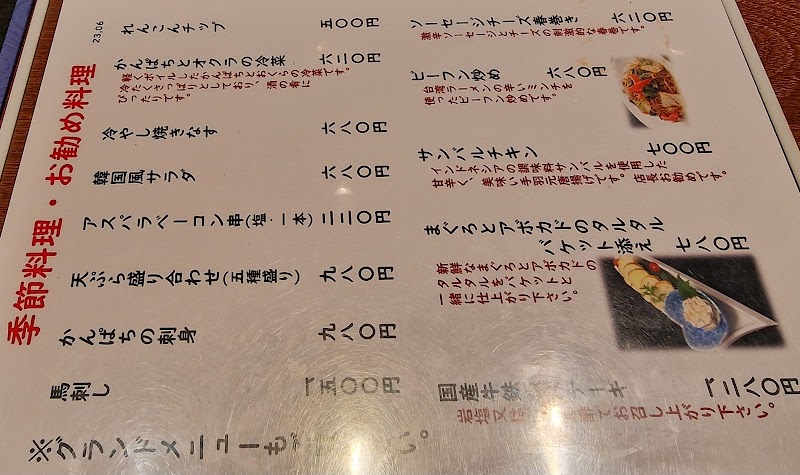 23.06
季節料理・お勧め料理
れんこんチップ 五〇〇円
かんぱちとオクラの冷菜 六二〇円
軽くボイルしたかんぱちとおくらの冷菜です。
冷たくさっぱりとしており、酒の肴に
ぴったりです。
冷やし焼きなす 六八〇円
韓国風サラダ 六八〇円
アスパラベーコン串(塩・一本) 二二〇円
天ぷら盛り合わせ(五種盛り) 九八〇円
かんぱちの刺身 九八〇円
馬刺し 一五〇〇円
※グランドメニューもご い。
ソーセージチーズ春巻き 六二〇円
激辛ソーセージとチーズの刺激的な春巻です。
ビーフン炒め 六八〇円
台湾ラーメンの辛いミンチを
使ったビーフン炒めです。
サンバルチキン 七〇〇円
インドネシアの調味料サンバルを使用した
甘辛く、美味い手羽元唐揚げです。店長お勧めです。
まぐろとアボカドのタルタル
バケット添え 七八〇円
新鮮なまぐろとアボカドの
タルタルをバケットと
一緒に召し上がり下さい。
国産牛鉄 ステーキ 一二八〇円
岩塩又は でお召し上がり下さい。